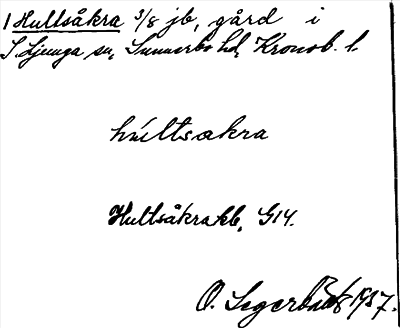 1 Hultsåkra 3/8 jb, gård i
S. Ljunga sn, Sunnerbo hd, Kronob. l.
húltsakra
Hultsåkra kb, G14.
O. Segerbäck 1937.